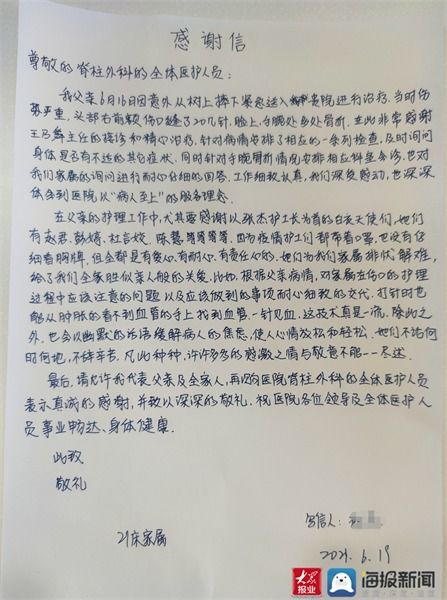 感谢信
尊敬的脊柱外科的全体医护人员：
我父亲6月16日因意外从树上摔下紧急送入贵院进行治疗，当时伤
势严重，头部右前额伤口缝了20几针，脸上，手腕处多处骨折，在此非常感谢
主任的接诊和精心治疗，针对病情安排了相应的一系列检查，及时询问
身体是否有不适的其它症状，同时针对手腕骨折情况安排相应科室会诊，也对
我们家属的询问进行耐心仔细的回答，工作细致认真，我们深受感动，也深深
体会到医院以“病人至上”的服务理念。
在父亲的护理工作中，尤其要感谢以张杰护士长为首的白衣天使们，她们
有赵君、彭婧、杜言姣、陈慧等等，因为疫情护士们都带着口罩，也没有仔
细看胸牌，但全都是有爱心，有耐心，有责任心的，她们为我们家属排忧解难，
给了我们全家胜似亲人般的关爱。比如，根据父亲病情，对家属在伤口的护理
过程中应该注意的问题以及应该做到的事项耐心细致的交代，打针时也
能从肿胀的看不到血管的手上找到血管，一针见血，这技术真是一流，除此之
外，也会以幽默的话语缓解病人的焦虑，使人心情放松和轻松，她们不论何
时何地，不辞辛苦，凡此种种，许许多多的感激之情与敬意不能一一尽述。
最后，请允许我代表父亲及全家人，再次向医院脊柱外科的全体医护人员
表示真诚的感谢，并致以深深的敬礼，祝医院各位领导及全体医护人
员事业畅达、身体健康。
此致
敬礼
21床家属
写信人：
2021.6.19
大众报业 海报新闻